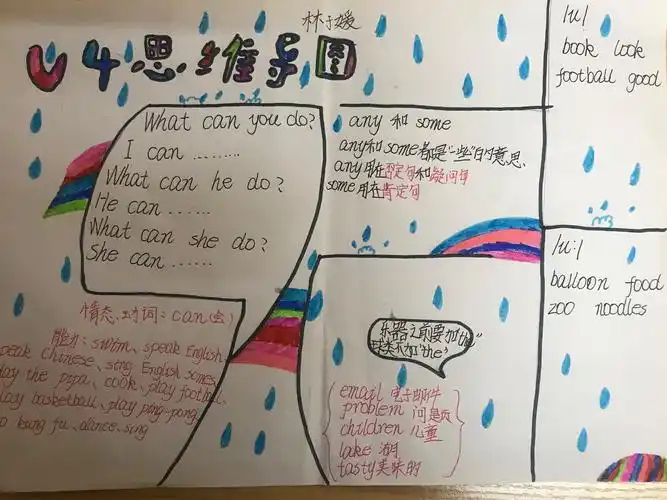 林子媛
U4思维导图
What can you do?
I can ........
What can he do?
He can ......
What can she do?
She can ......
any 和 some
any和some都是“一些”的意思.
any用在否定句和疑问句
some用在肯定句
/u/
book look
football good
/u:/
balloon food
zoo noodles
情态动词: can(会)
能力: swim、speak English、
speak Chinese、song English songs、
play the pipa、cook、play football、
play basketball、play ping-pong、
do kung fu、dance、sing
乐器之前要加“the”
球类不加“the”
email 电子邮件
problem 问题
children 儿童
lake 湖
tasty美味的